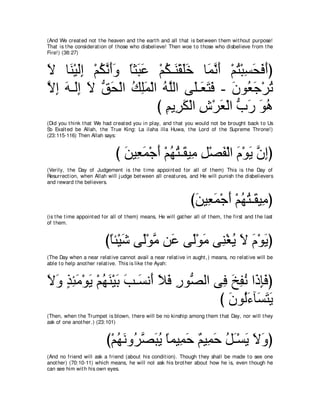 (And We created not the heaven and the earth and all that is between them without purpose!
That is the consideration of those who disbelieve! Then woe to those who disbelieve from the
Fire!) (38:27)
أَفَحَسِبْتُمْ أَنَّمَا خَلَقْنَـكُمْ عَبَثاً وَأَنَّكُمْ إِلَيْنَا لاَ
تُرْجَعُونَ - فَتَعَـلَى اللَّهُ الْمَلِكُ الْحَقُّ لاَ إِلَـهَ إِلاَّ
هُوَ رَبُّ الْعَرْشِ الْكَرِيمِ )
(Did you think that We had created you in play, and that you would not be brought back to Us
So Exalted be Allah, the True King: La ilaha illa Huwa, the Lord of the Supreme Throne!)
(23:115-116) Then Allah says:
(إِنَّ يَوْمَ الْفَصْلِ مِيقَـتُهُمْ أَجْمَعِينَ )
(Verily, the Day of Judgement is the time appointed for all of them) This is the Day of
Resurrection, when Allah will judge between all creatures, and He will punish the disbelievers
and reward the believers.
(مِيقَـتُهُمْ أَجْمَعِينَ)
(is the time appointed for all of them) means, He will gather all of them, the first and the last
of them.
(يَوْمَ لاَ يُغْنِى مَوْلًى عَن مَّوْلًى شَيْئاً)
(The Day when a near relative cannot avail a near relative in aught,) means, no relative will be
able to help another relative. This is like the Ayah:
(فَإِذَا نُفِخَ فِى الصُّورِ فَلاَ أَنسَـبَ بَيْنَهُمْ يَوْمَئِذٍ وَلاَ
يَتَسَآءَلُونَ )
(Then, when the Trumpet is blown, there will be no kinship among them that Day, nor will they
ask of one another.) (23:101)
(وَلاَ يَسْـَلُ حَمِيمٌ حَمِيماً يُبَصَّرُونَهُمْ)
(And no friend will ask a friend (about his condition). Though they shall be made to see one
another) (70:10-11) which means, he will not ask his brother about how he is, even though he
can see him with his own eyes.